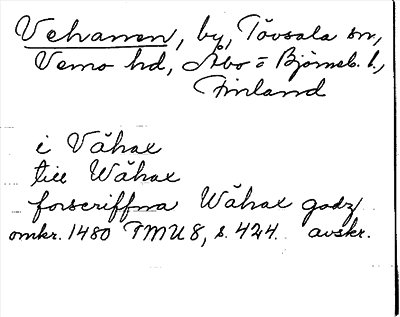 Vehanen, by, Tövsala sn,
Vemo hd, Åbo = Björneb. l.,
Finland
i Wăhax
till Wăhax
forscriffna Wăhax godz
omkr. 1480 FMU 8, s. 424. avskr.